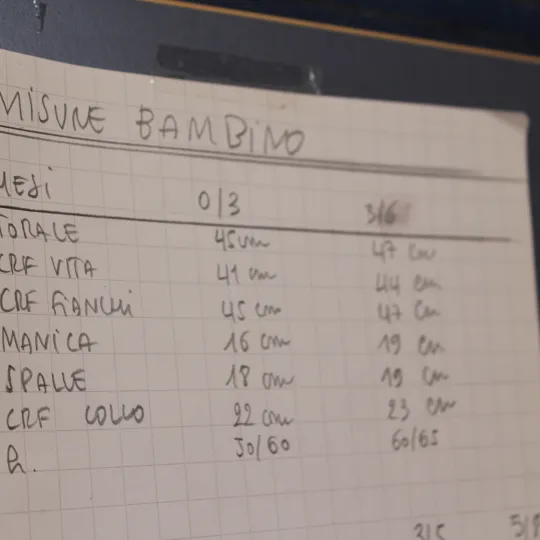 MISURE BAMBINO
MESI 0/3 3/6
TORALE 45 cm 47 cm
CRF VITA 41 cm 44 cm
CRF FIANCHI 45 cm 47 cm
MANICA 16 cm 19 cm
SPALLE 18 cm 19 cm
CRF COLLO 22 cm 23 cm
h. 50/60 60/65